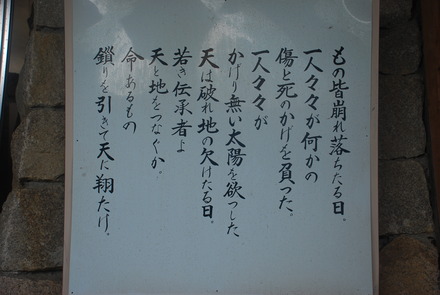 もの皆崩れ落ちたる日。
一人々々が何かの
傷と死のかげを負った。
一人々々が
かげり無い太陽を欲つした
天は破れ地の欠けたる日。
若き伝承者よ
天と地をつなぐか。
命あるもの
鎖りを引きて天に翔たけ。